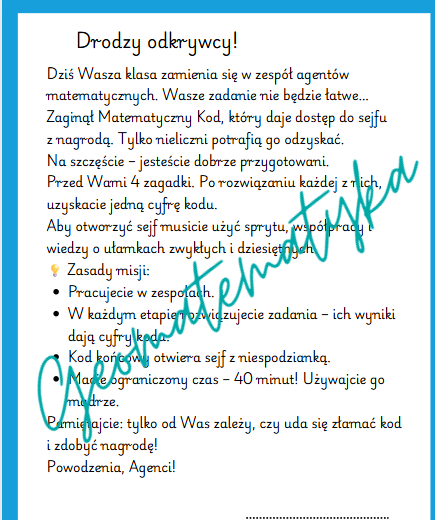 Drodzy odkrywcy!
Dziś Wasza klasa zamienia się w zespół agentów
matematycznych. Wasze zadanie nie będzie łatwe...
Zaginął Matematyczny Kod, który daje dostęp do sejfu
z nagrodą. Tylko nieliczni potrafią go odzyskać.
Na szczęście – jesteście dobrze przygotowani.
Przed Wami 4 zagadki. Po rozwiązaniu każdej z nich,
uzyskacie jedną cyfrę kodu.
Aby otworzyć sejf musicie użyć sprytu, współpracy i
wiedzy o ułamkach zwykłych i dziesiętnych.
💡 Zasady misji:
• Pracujecie w zespołach.
• W każdym etapie rozwiązujecie zadania – ich wyniki
dają cyfry kodu.
• Kod końcowy otwiera sejf z niespodzianką.
• Macie ograniczony czas – 40 minut! Używajcie go
mądrze.
Pamiętajcie: tylko od Was zależy, czy uda się złamać kod
i zdobyć nagrodę!
Powodzenia, Agenci!
Geomatematyska